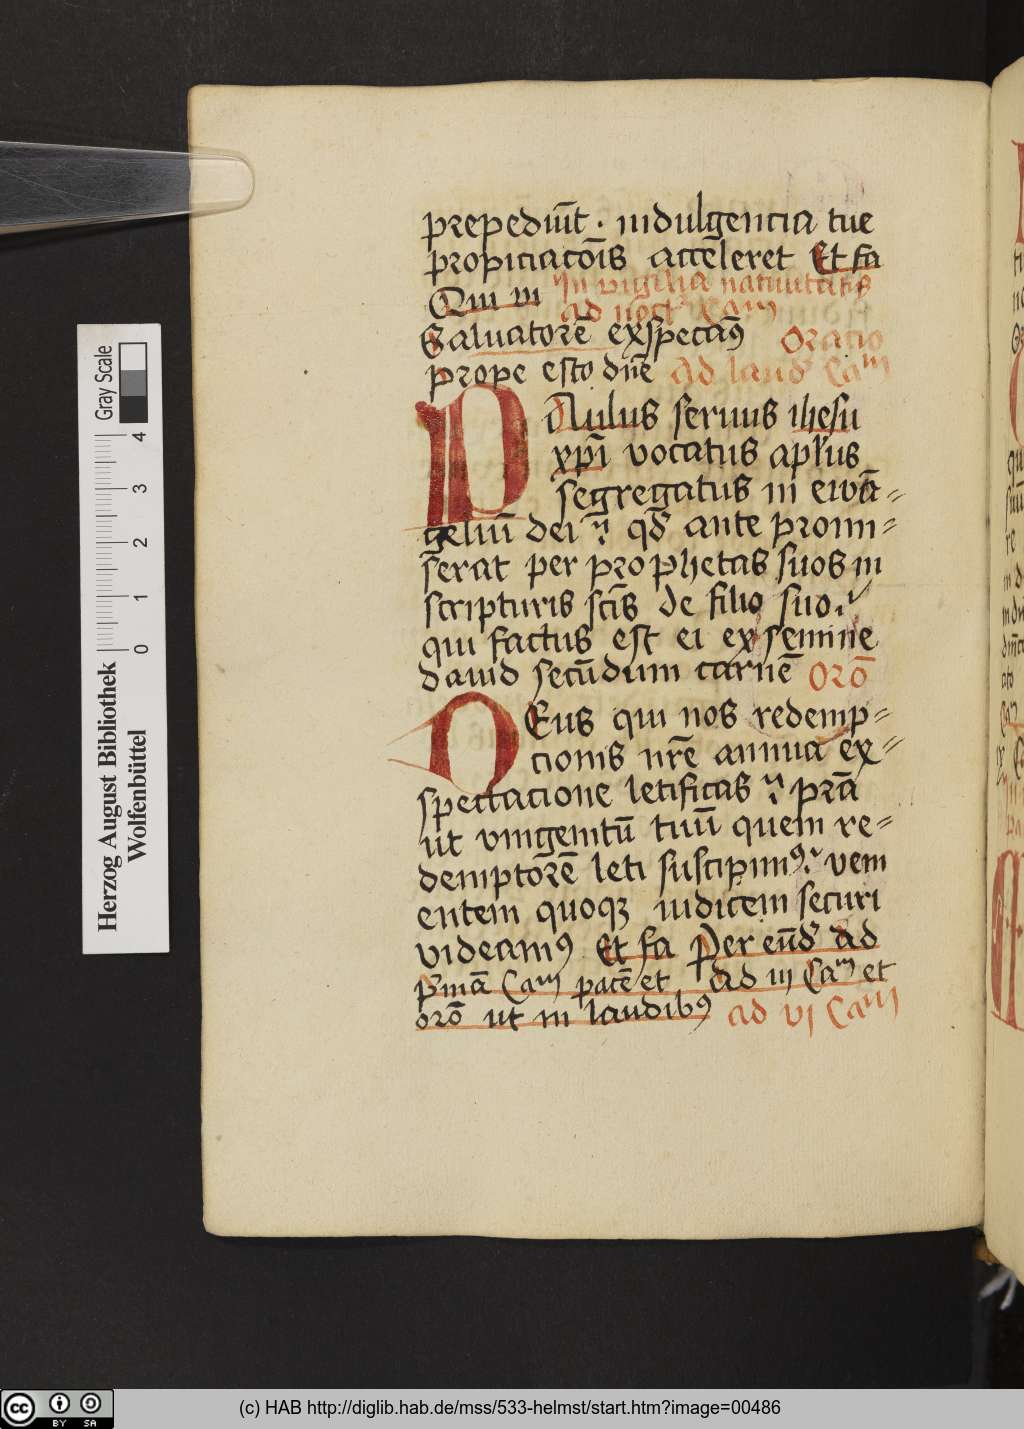 prepediūt · indulgencia tue
propiciacōis acceleret Et fa
Qui in In vigilia natiuitatis
ad noct Cam
Saluatorē exspectam9 Oratio
prope esto dn̄e Ad laud Cam
PAulus seruus ihesu
xp̄i vocatus apl̄us
segregatus in ewā=
geliū dei qd̄ ante promi=
serat per prophetas suos in
scripturis sc̄is de filio suo
qui factus est ei ex semine
dauid secūdum carnē Orō
DEus qui nos redemp=
cionis nr̄e annua ex=
spectacione letificas prā
ut vnigenitū tuū quem re=
demptorē leti suscipim9 veni
entem quoqꝫ iudicem securi
videam9 Et fa Per eūd̄ Ad
p̄mā Cam pacē et Ad iij Cam et
orō ut in laudib9 ad vj Cam
Herzog August Bibliothek
Wolfenbüttel
Gray Scale
0 1 2 3 4
cc BY SA
(c) HAB http://diglib.hab.de/mss/533-helmst/start.htm?image=00486